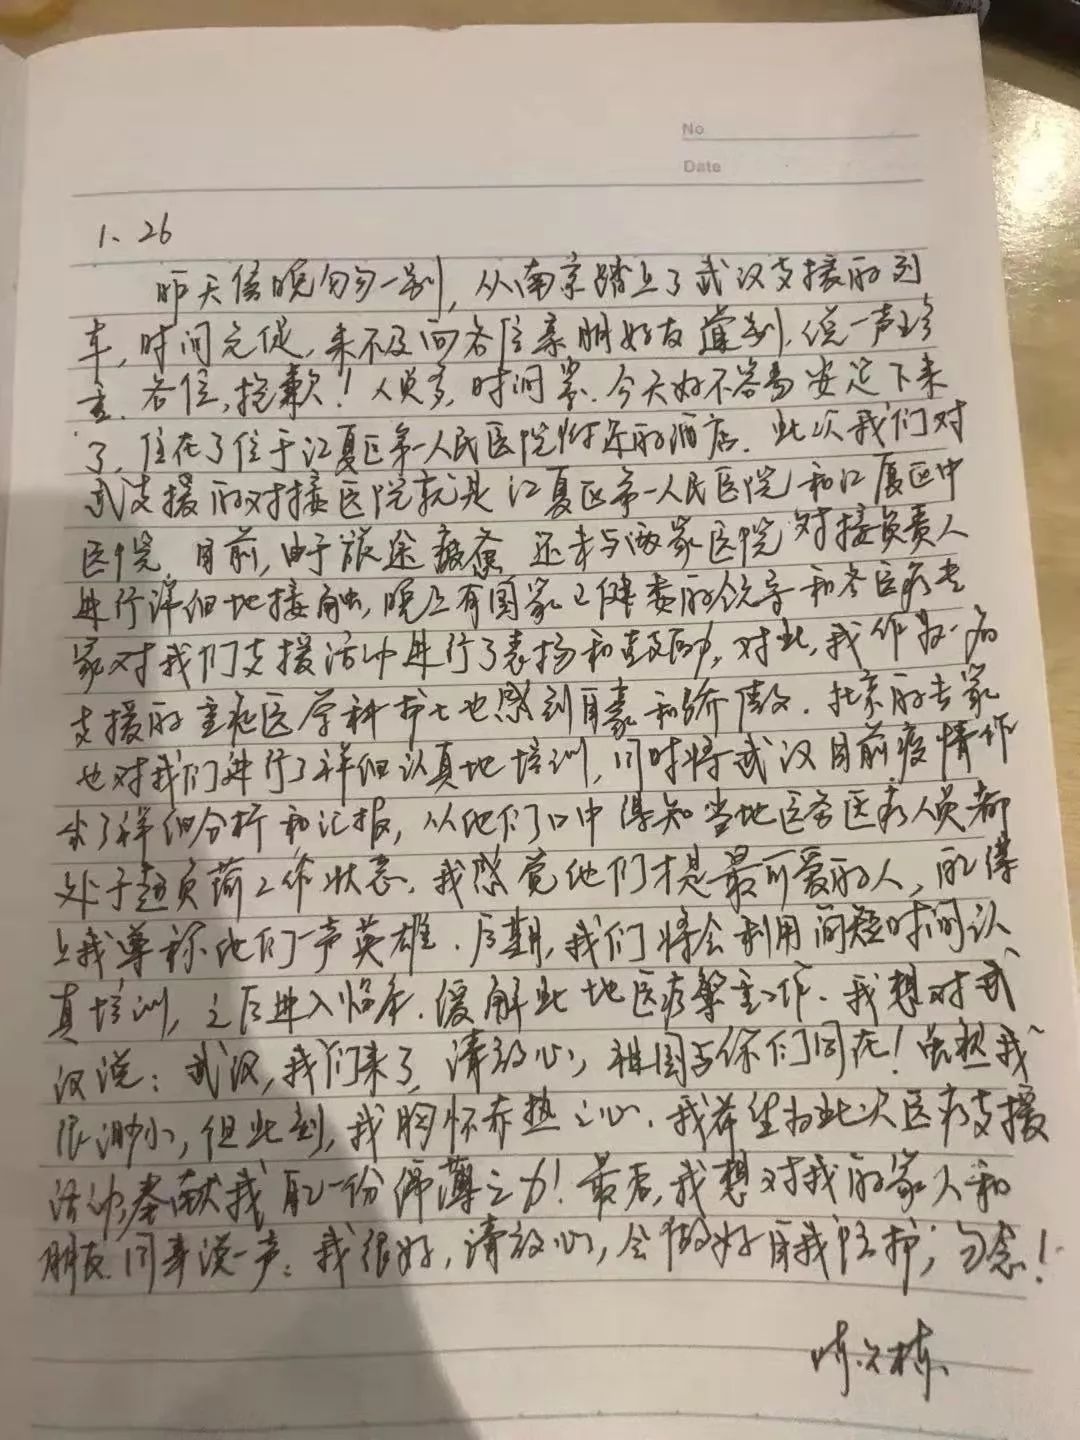 No
Date
1、26
昨天傍晚匆匆一别，从南京踏上了武汉支援的列
车，时间仓促，来不及向各位亲朋好友道别，说一声珍
重。各位，抱歉！人员多，时间紧，今天好不容易安定下来
了，住在了位于江夏区第一人民医院附近的酒店。此次我们对
武支援的对接医院就是江夏区第一人民医院和江夏区中
医院。目前，由于旅途疲惫，还未与两家医院对接负责人
进行详细地接触，晚上有国家卫健委的领导和各医疗专
家对我们支援活动进行了表扬和鼓励，对此，我作为一名
支援的重症医学科护士也感到自豪和骄傲。北京的专家
也对我们进行了详细认真地培训，同时将武汉目前疫情作
出了详细分析和汇报，从他们口中得知当地医务医疗人员都
处于超负荷工作状态，我感觉他们才是最可爱的人，配得
上我尊称他们一声英雄。后期，我们将会利用简短时间认
真培训，之后进入临床，缓解此地医疗繁重工作。我想对武
汉说：武汉，我们来了，请放心，祖国与你们同在！虽然我
很渺小，但此刻，我胸怀赤热之心，我希望为此次医疗支援
活动奉献我自己一份绵薄之力！最后，我想对我的家人和
朋友、同事说一声：我很好，请放心，会做好自我防护，勿念！